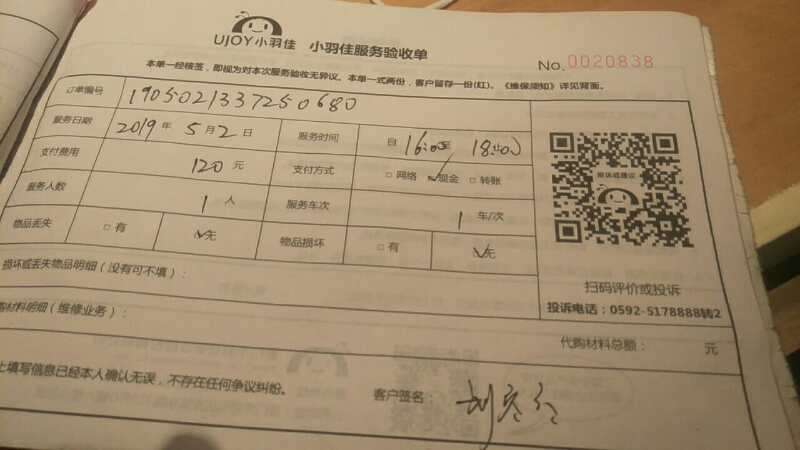 UJOY小羽佳 小羽佳服务验收单
No.0020838
本单一经核签，即视为对本次服务验收无异议。本单一式两份，客户留存一份(红)。《维保须知》详见背面。
订单编号 1905021337250680
服务日期 2019年5月2日 服务时间 自16:00至18:00
支付费用 120元 支付方式 □网络 ☑现金 □转账
服务人数 1人 服务车次 1车/次
物品丢失 □有 ☑无 物品损坏 □有 ☑无
损坏或丢失物品明细（没有可不填）：
购材料明细（维修业务）：
代购材料总额： 元
上填写信息已经本人确认无误，不存在任何争议纠纷。
客户签名：
扫码评价或投诉
投诉电话：0592-5178888转2